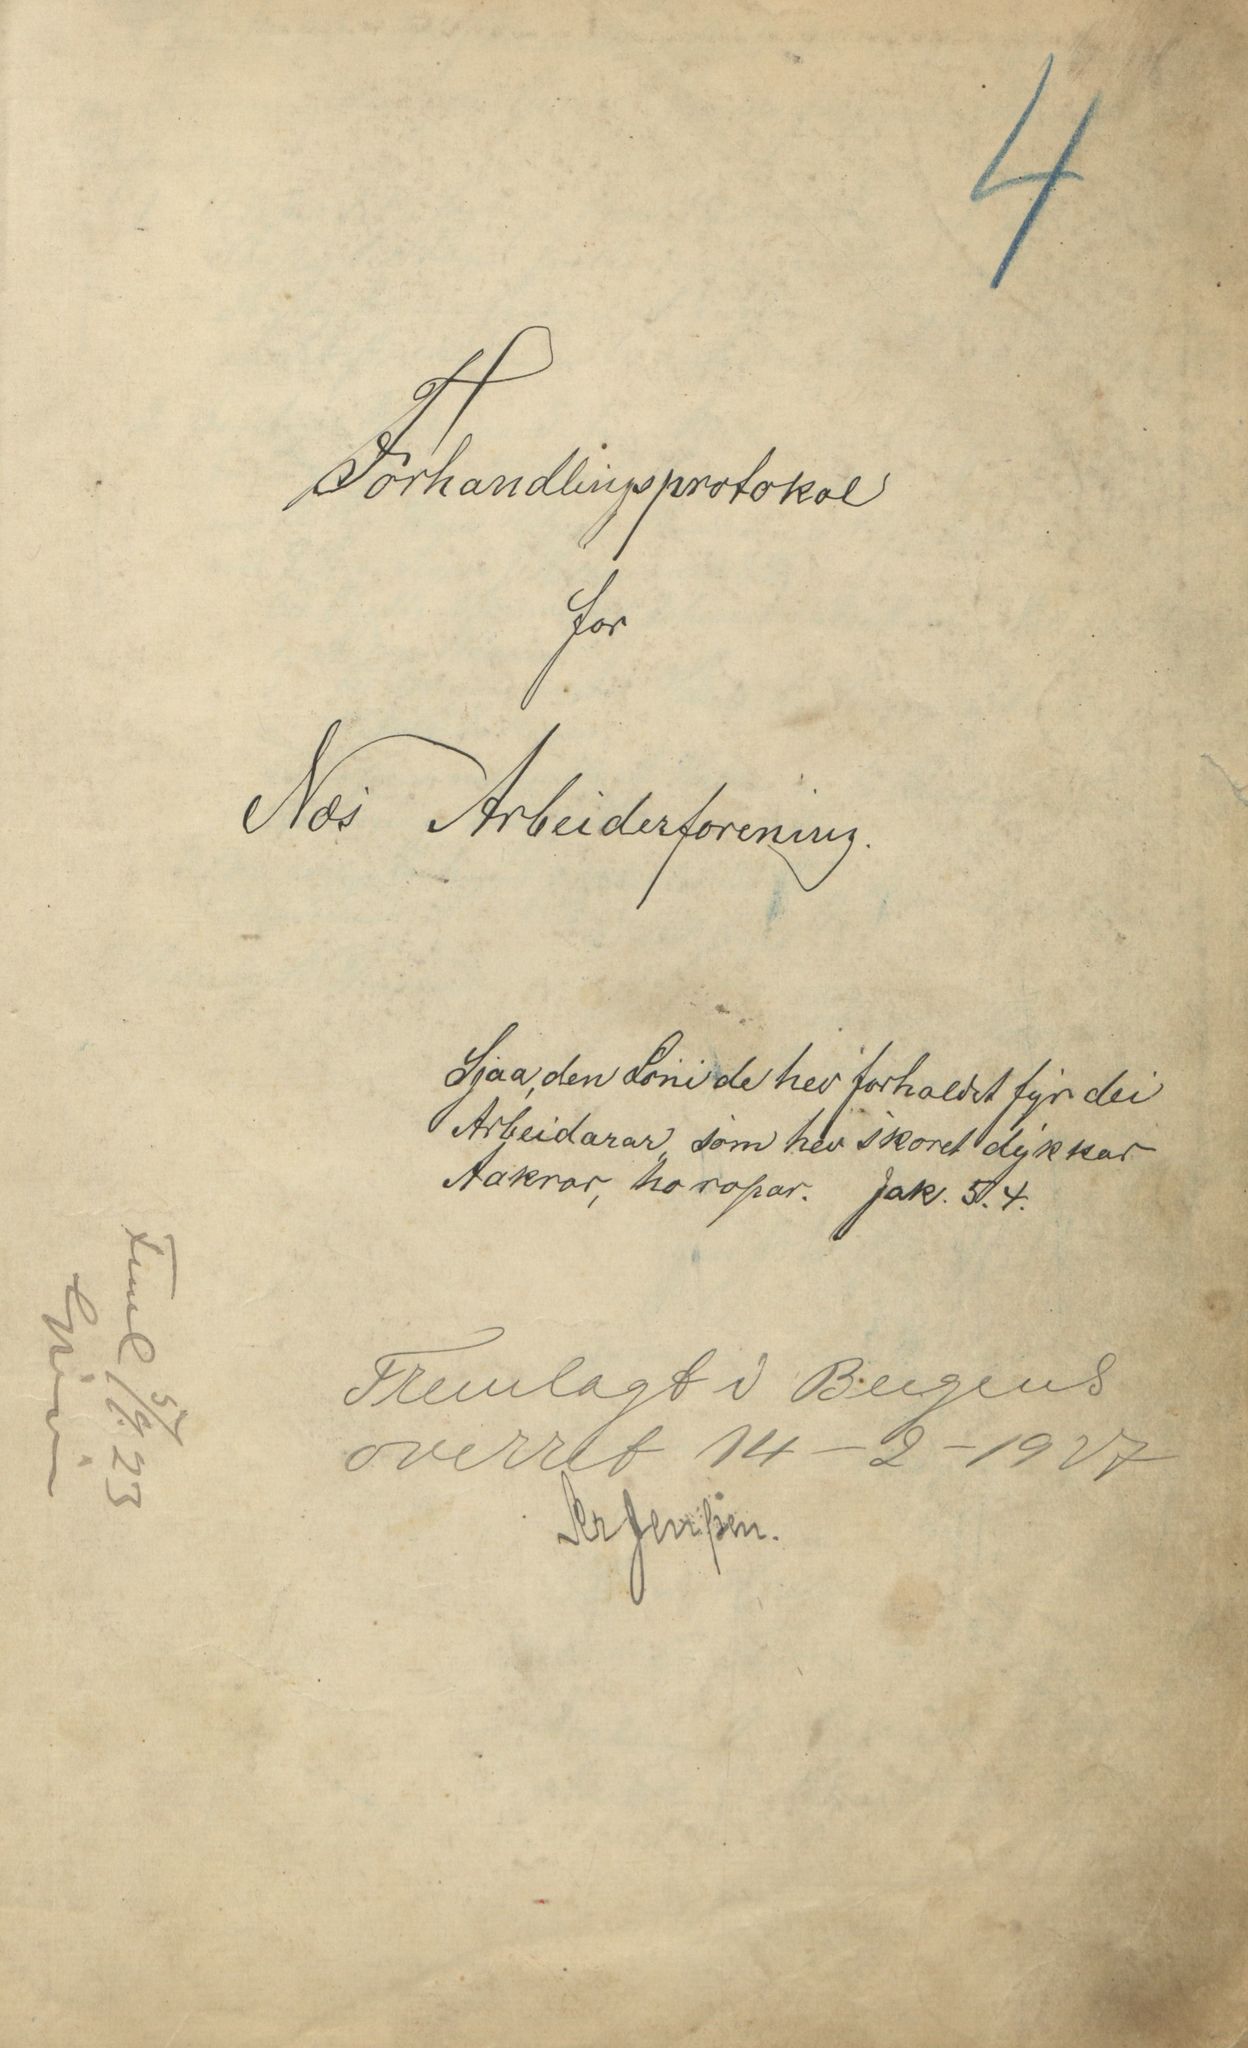 4
Forhandlingsprotokol
for
Næs Arbeiderforening.
Sjaa, den Löni de hev forhaldet fyr dei
Arbeidarar, som hev skoret dykkar
Aakrar, ho ropar. Jak. 5. 4.
Fremlagt i Bergens
overret 14-2-1927
Jenssen.
Freml 5/9.23